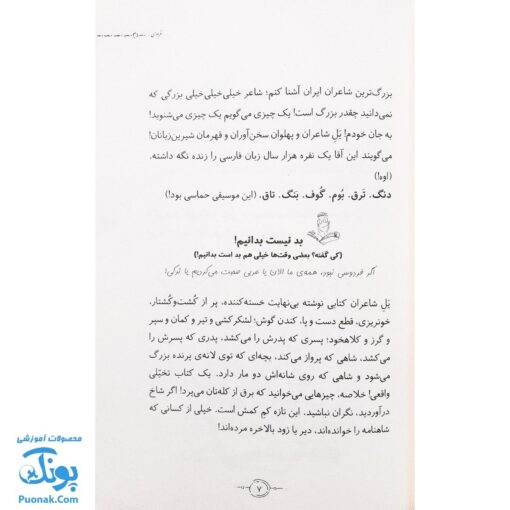 بزرگ‌ترین شاعران ایران آشنا کنم؛ شاعر خیلی‌خیلی‌خیلی بزرگی که
نمی‌دانید چقدر بزرگ است! یک چیزی می‌گویم یک چیزی می‌شنوید!
به جان خودم! یَلِ شاعران و پهلوان سخن‌آوران و قهرمان شیرین‌زبانان!
می‌گویند این آقا یک نفره هزار سال زبان فارسی را زنده نگه داشته.
(اوه!)
دنگ. تَرق. بُوم. گُوف. بَنگ. تاق. (این موسیقی حماسی بود!)
بد نیست بدانیم!
(کی گفته؟ بعضی وقت‌ها خیلی هم بد است بدانیم!)
اگر فردوسی نبود، همه‌ی ما الان یا عربی صحبت می‌کردیم یا ترکی!
یَلِ شاعران کتابی نوشته بی‌نهایت خسته‌کننده، پر از کُشت‌وکُشتار،
خونریزی، قطع دست و پا، کندن گوش؛ لشکرکشی و تیر و کمان و سپر
و گرز و کلاهخود؛ پسری که پدرش را می‌کشد، پدری که پسرش را
می‌کشد، شاهی که پرواز می‌کند، بچه‌ای که توی لانه‌ی پرنده بزرگ
می‌شود و شاهی که روی شانه‌اش دو مار دارد. یک کتاب تخیّلی
واقعی! خلاصه، چیزهایی می‌خوانید که برق از کله‌تان می‌پرد! اگر شاخ
درآوردید، نگران نباشید. این تازه کمِ کمش است. خیلی از کسانی که
شاهنامه را خوانده‌اند، دیر یا زود بالاخره مرده‌اند!
۷
محصولات آموزشی
پونک
Puonak.Com